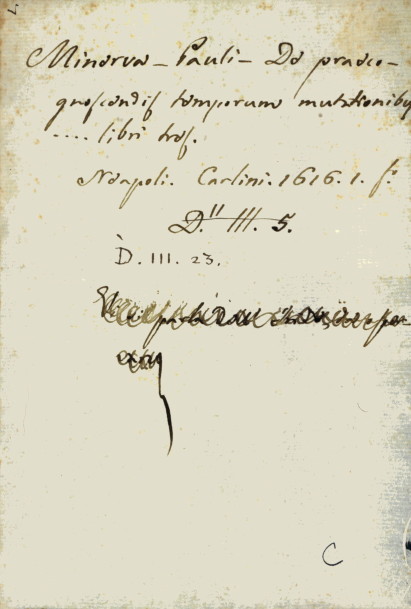 Minerva - Pauli - De praeco-
gnoscendis temporum mutationibus
.... libri tres.
Neapoli. Carlini. 1616. 1. f.º
D." III. 5.
D. III. 23.
C